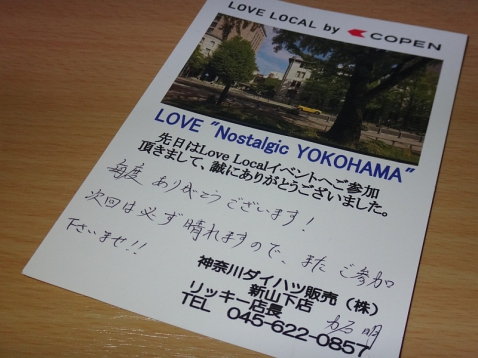 LOVE LOCAL by COPEN
LOVE "Nostalgic YOKOHAMA"
先日はLove Localイベントへご参加
頂きまして、誠にありがとうございました。
毎度 ありがとうございます!
次回は必ず晴れますので、また ご参加
下さいませ!!
神奈川ダイハツ販売(株)
新山下店
リッキー店長
TEL 045-622-0857